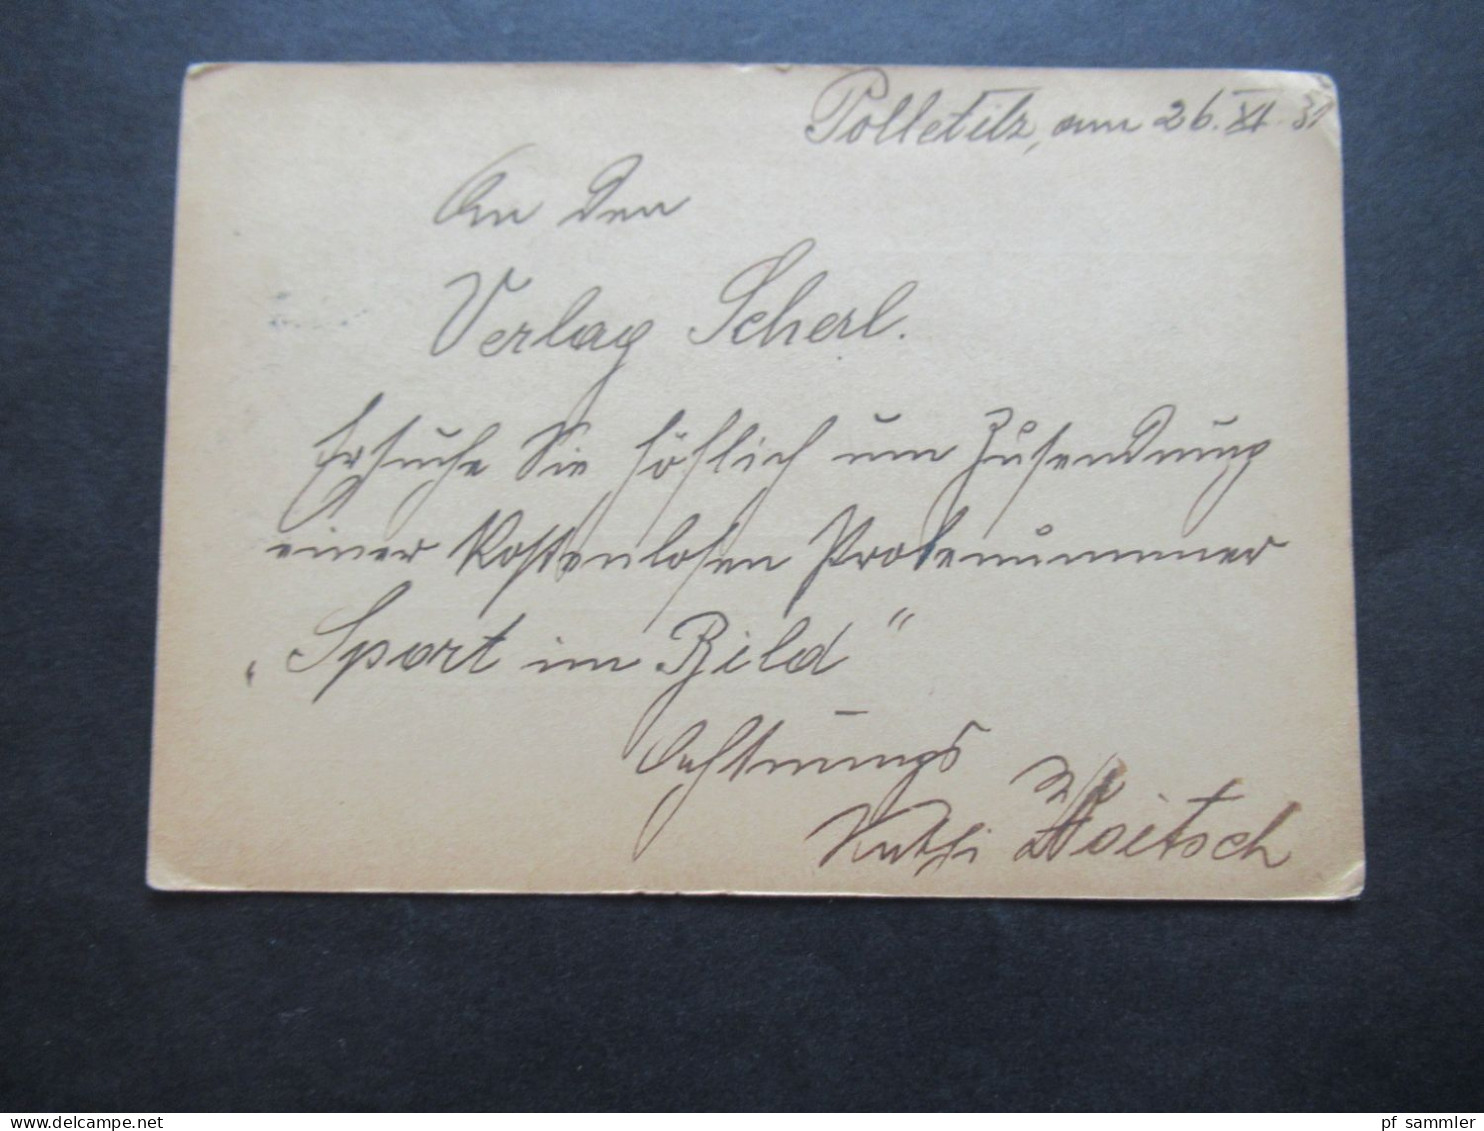 Polletitz, am 26. XI. 31
An den
Verlag Scherl.
Ersuche Sie höflich um Zusendung
einer kostenlosen Probenummer
„Sport im Bild“
Achtungs
Woitsch
delcampe.net
pf_sammler